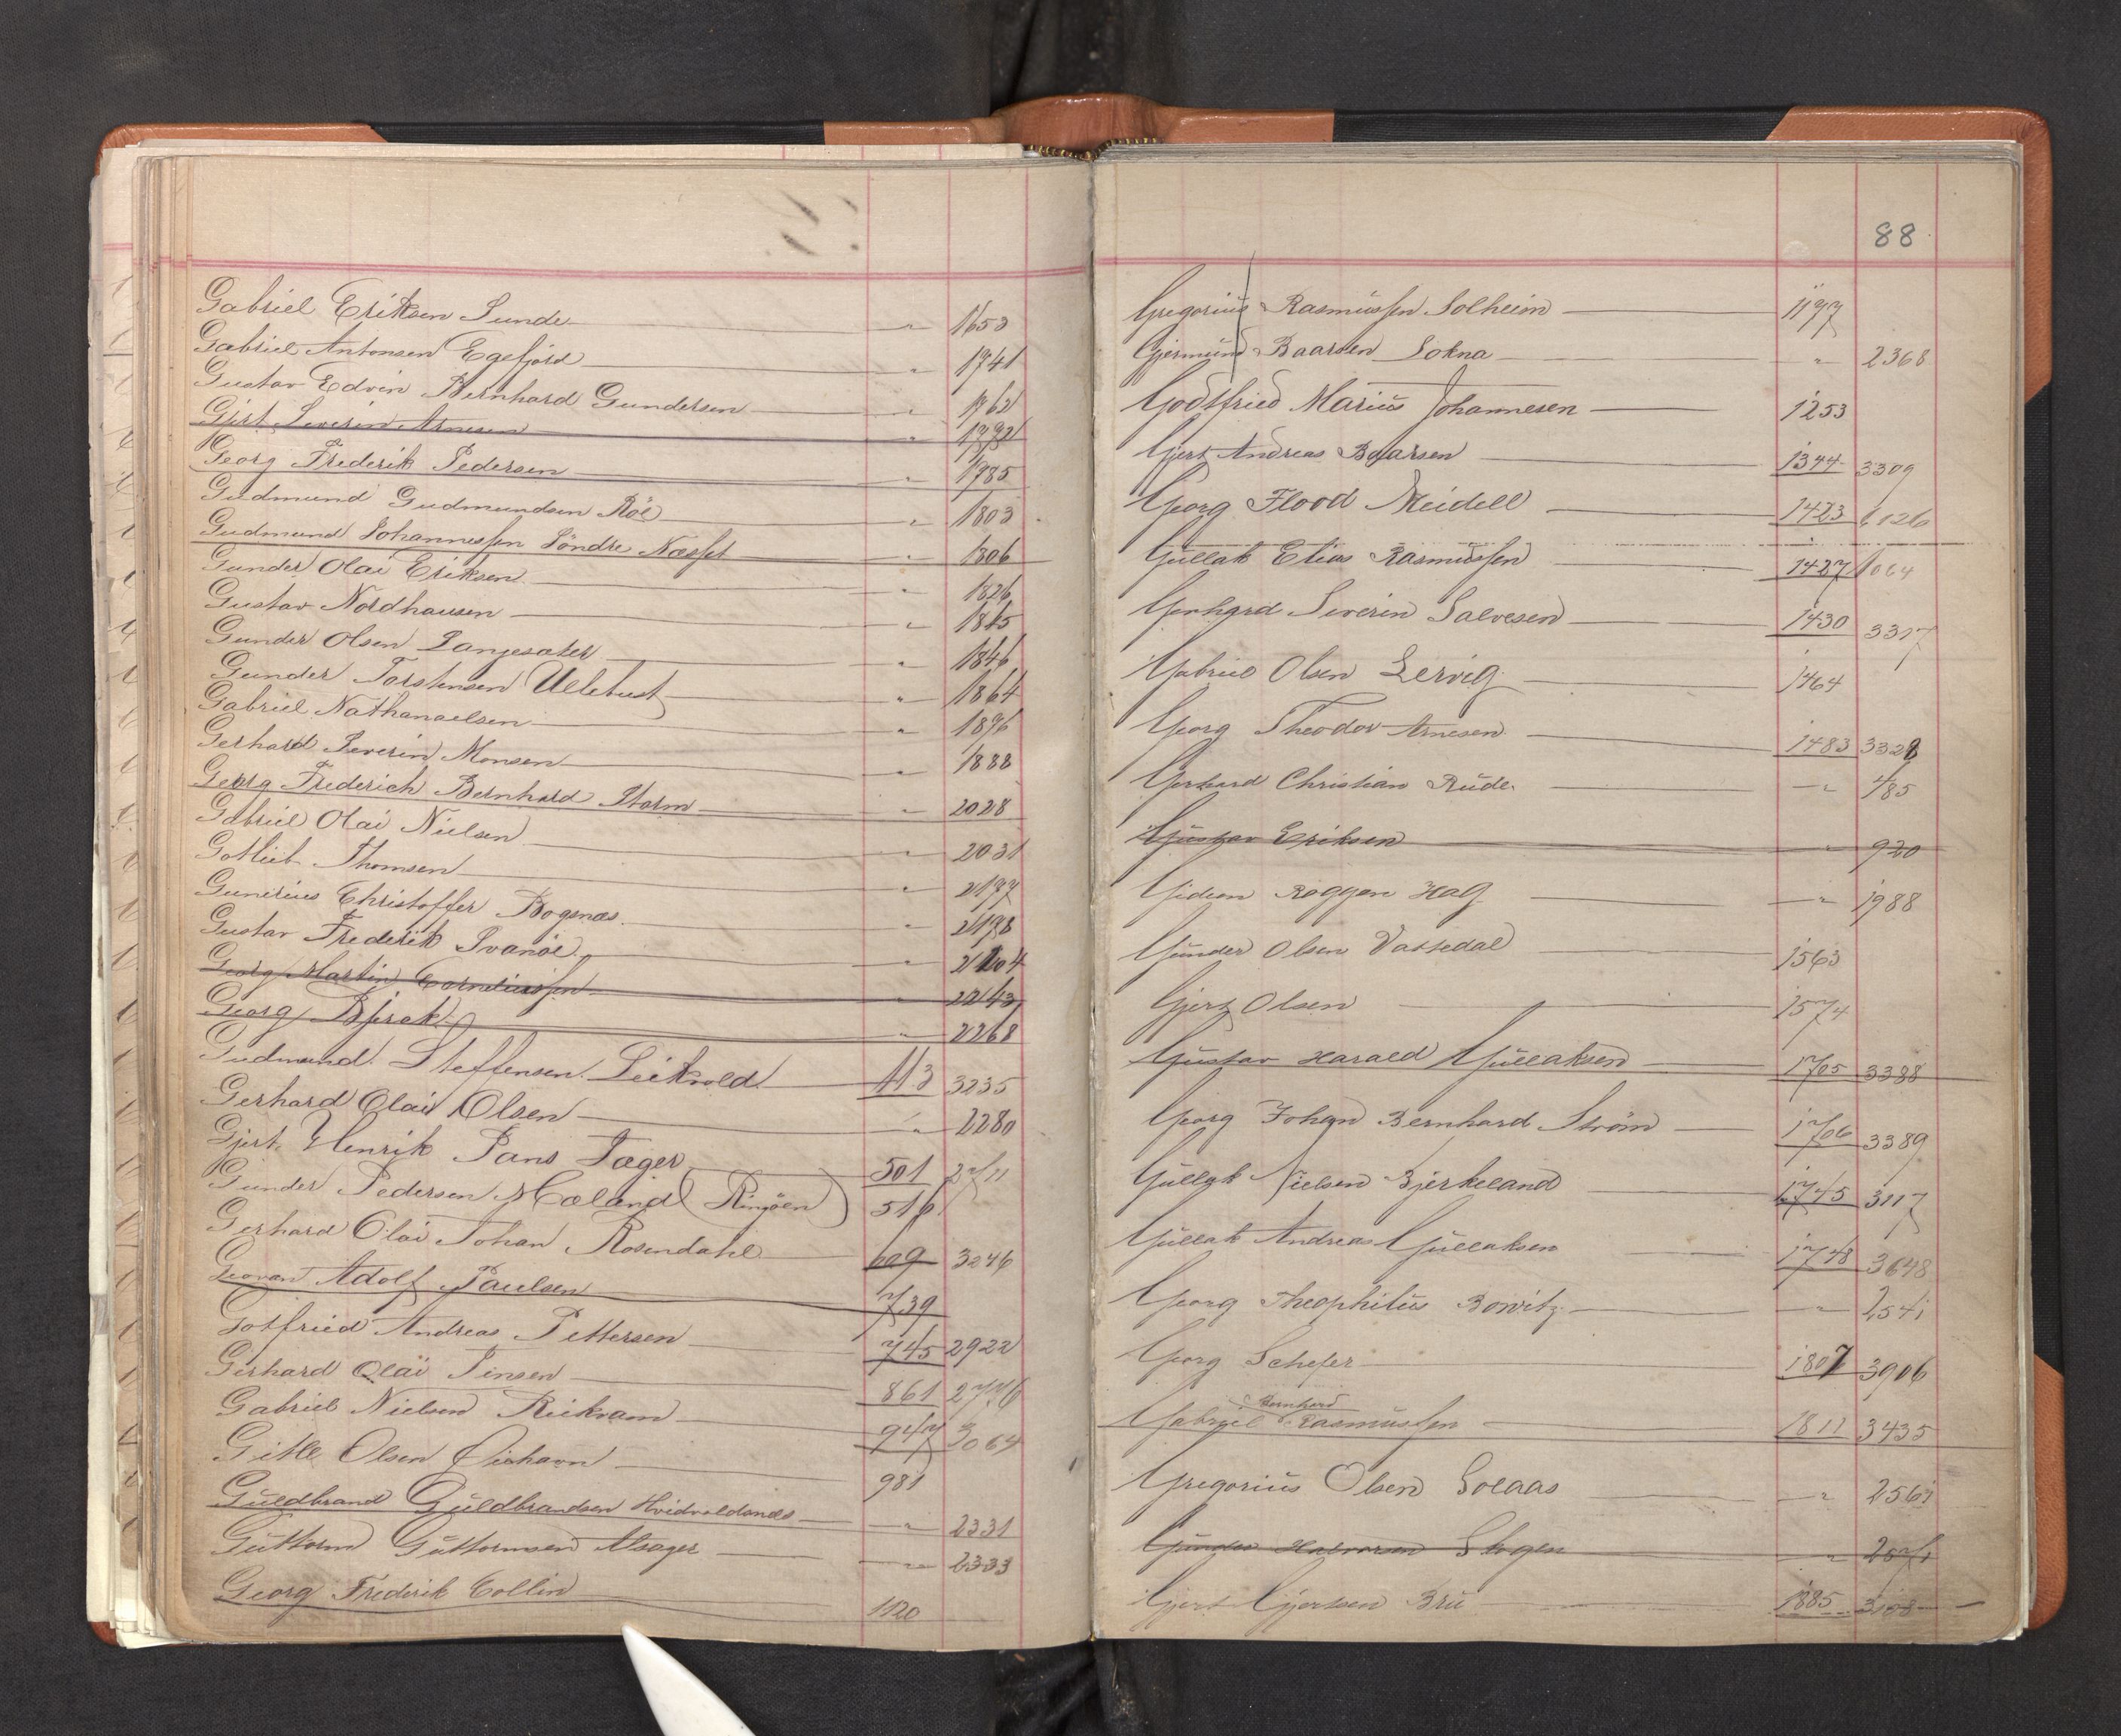 Gabriel Eriksen Sunde " 1653
Gabriel Antonsen Egefjord " 1741
Gustav Edvin Bernhard Gundersen " 1762
Gjert Severin Arnesen " 1772
Georg Frederik Pedersen " 1785
Gudmund Gudmundsen Röe " 1803
Gudmund Johannessen Söndre Næsset " 1806
Gunder Olai Eriksen 1826
Gustav Nordhausen " 1845
Gunder Olsen Langesæter " 1846
Gunder Torstensen Ullebust " 1864
Gabriel Nathanaelsen " 1876
Gerhard Severin Monsen " 1888
Georg Frederich Bernhard Storm " 2028
Gabriel Olai Nielsen " 2031
Gotlieb Thomsen " 2177
Gunerius Christoffer Bogenæs " 2178
Gustav Frederik Svanöe " 2204
Georg Martin Corneliussen " 2243
Georg Bjerck " 2268
Gudmund Steffensen Leikvold 113 3235
Gerhard Olai Olsen " 2280
Gjert Henrik Jans Jæger 501 2711
Gunder Pedersen Mæland (Ringöen) 516
Gerhard Olai Johan Rosendahl 609 3246
Adolf Paulsen 739
Gotfried Andreas Pettersen 745 2922
Gerhard Olai Jensen 861 2776
Gabriel Nielsen Reikvam 947 3064
Gitle Olsen 981
Guldbrand Guldbrandsen " 2331
Guttorm Guttormsen Alsager " 2333
Georg Frederik Collin 1120
88
Gregorius Rasmussen Solheim 1197
Gjermund Baarsen Sokna " 2368
Godtfried Marius Johannesen 1253
Gjert Andreas Baarsen 1344 3309
Georg Flood Meidell 1423 6126
Gullak Elias Rasmussen 1427 1064
Gerhard Severin Salvesen 1430 3317
Gabriel Olsen Lervig 1464
Georg Theodor Arnesen 1483 3328
Gerhard Christian Rude " 485
Gustav Eriksen " 920
Gideon Roggen Hals " 1988
Gunder Olsen Vassedal 1563
Gjert Olsen 1574
Gustav Harald Gullaksen 1705 3388
Georg Johan Bernhard Ström 1706 3389
Gullak Nielsen Bjerkeland 1745 3117
Gullak Andreas Gullaksen 1748 3648
Georg Theophilus Bowitz " 2541
Georg Schefer 1807 3906
Bernhard
Gabriel Rasmussen 1811 3435
Gregorius Olsen Solaas " 2561
Gunder Halvorsen Skogen " 2571
Gjert Gjertsen Bru 1885